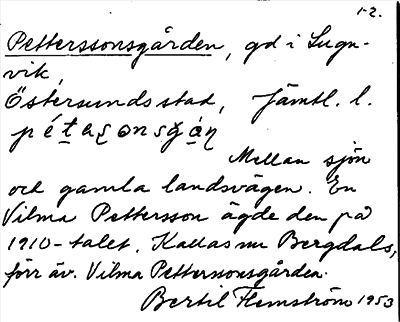 1-2.
Petterssonsgården, gd i Lugn-
vik,
Östersunds stad, Jämtl. l.
Mellan sjön
och gamla landsvägen. En
Vilma Pettersson ägde den på
1910-talet. Kallas nu Bergdals,
förr äv. Vilma Petterssonsgården.
Bertil Flemström 1953